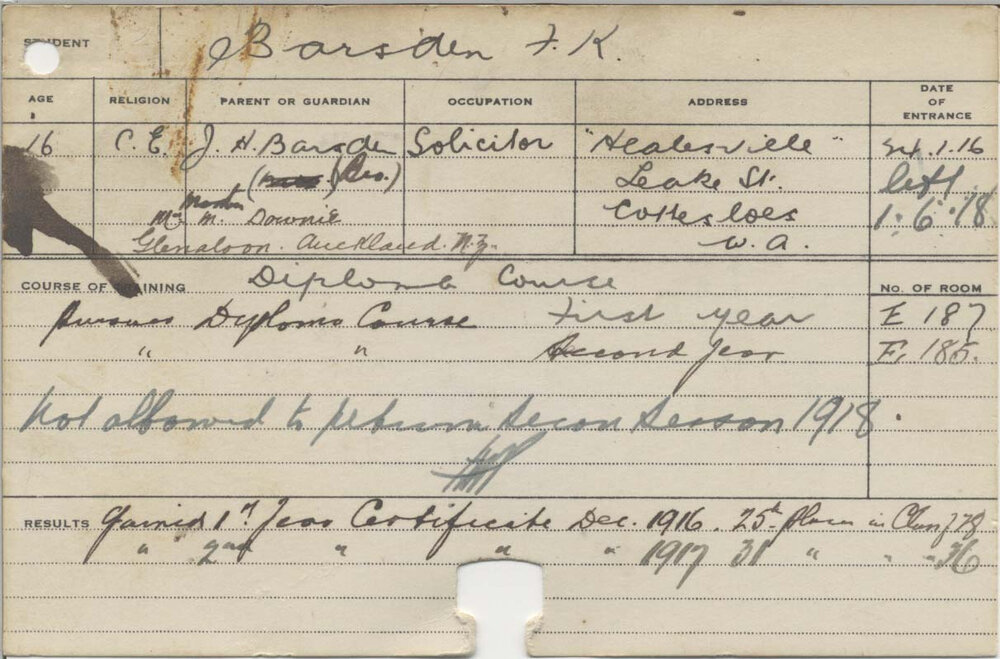 STUDENT Barsden F. K.
AGE RELIGION PARENT OR GUARDIAN OCCUPATION ADDRESS DATE OF ENTRANCE
16 C. E. J. H. Barsden Solicitor "Healesville" Sept. 1. 16
(Bro.) Leake St. left
Mrs M. Downie Cottesloes 1. 6. 18
Glenaloon. Auckland. N.Z. W. A.
COURSE OF TRAINING Diploma Course No. OF ROOM
Pursues Diploma Course First year E 187
" " Second Year E. 185.
Not allowed to return Secon Season 1918.
RESULTS Gained 1st Year Certificate Dec. 1916. 25th place in Class / 78
" 2nd " " " 1917 31 " " " 36